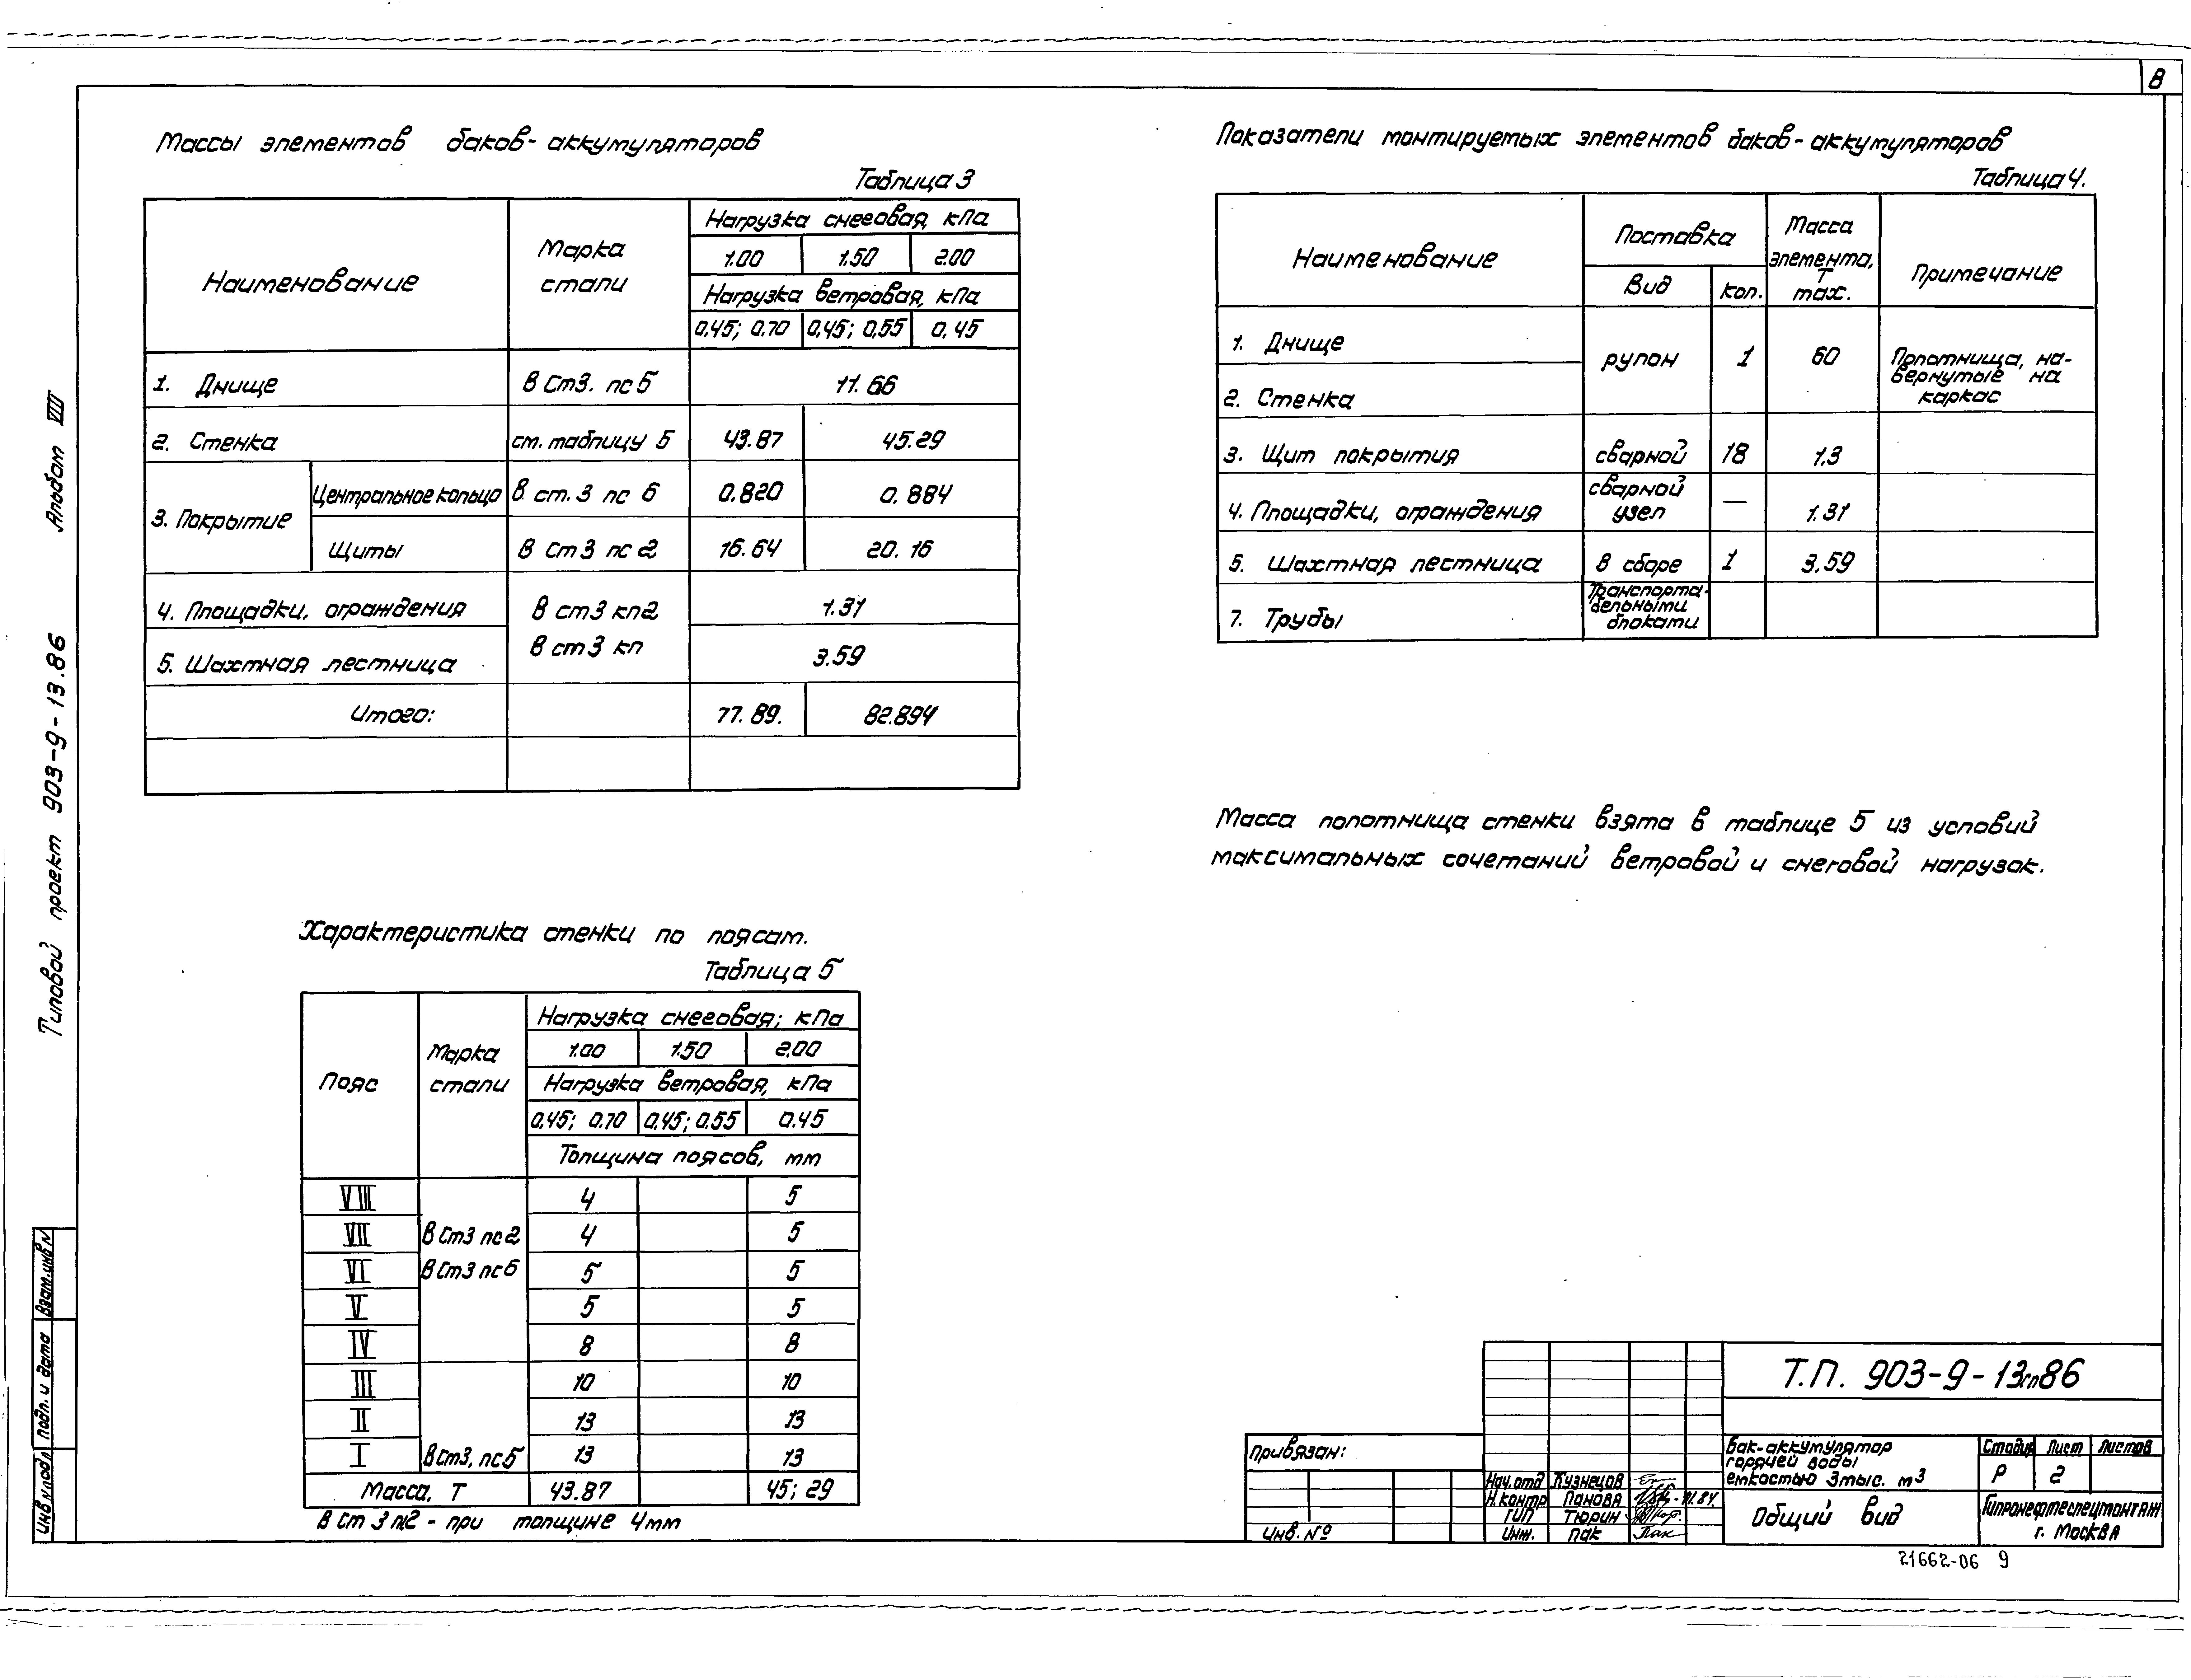 8
Массы элементов баков-аккумуляторов
Таблица 3
Наименование
Марка стали
Нагрузка снеговая, кПа
1.00 1.50 2.00
Нагрузка ветровая, кПа
0,45; 0.70 0,45; 0,55 0,45
1. Днище В Ст3. пс 5 11.66
2. Стенка см. таблицу 5 43.87 45.29
3. Покрытие
Центральное кольцо В. ст. 3 пс 6 0.820 0.884
Щиты В Ст 3 пс 2 16.64 20.16
4. Площадки, ограждения В ст3 кп2 1.31
5. Шахтная лестница В ст3 кп 3.59
Итого: 77.89. 82.894
Показатели монтируемых элементов баков-аккумуляторов
Таблица 4.
Наименование
Поставка
Вид Кол.
Масса элемента, Т max.
Примечание
1. Днище
2. Стенка
рулон 1 60 Полотнища, на-
вернутые на
каркас
3. Щит покрытия сварной 18 1.3
4. Площадки, ограждения сварной узел — 1.31
5. Шахтная лестница В сборе 1 3.59
7. Трубы Транспорта-
бельными
блоками
Масса полотнища стенки взята в таблице 5 из условий
максимальных сочетаний ветровой и снеговой нагрузок.
Характеристика стенки по поясам.
Таблица 5
Пояс
Марка стали
Нагрузка снеговая; кПа
1.00 1.50 2.00
Нагрузка ветровая, кПа
0,45; 0.70 0,45; 0.55 0.45
Толщина поясов, мм
VIII 4 5
VII В Ст3 пс 2 4 5
VI В Ст3 пс 6 5 5
V 5 5
IV 8 8
III 10 10
II 13 13
I В Ст3, пс 5 13 13
Масса, Т 43.87 45; 29
В Ст 3 пс2 - при толщине 4мм
Альбом VIII
Типовой проект 903-9-13.86
Взам. инв N
Подп. и дата
Инв N подл
Привязан:
Инв. №
Нач. отд Кузнецов
Н. контр Панова
ГИП Тюрин
Инж. Пак
Т.П. 903-9-13сп86
Бак-аккумулятор
горячей воды
емкостью 3тыс. м3
Стадия Лист Листов
Р 2
Общий вид
Гипронефтеспецмонтаж
г. Москва
21662-06 9